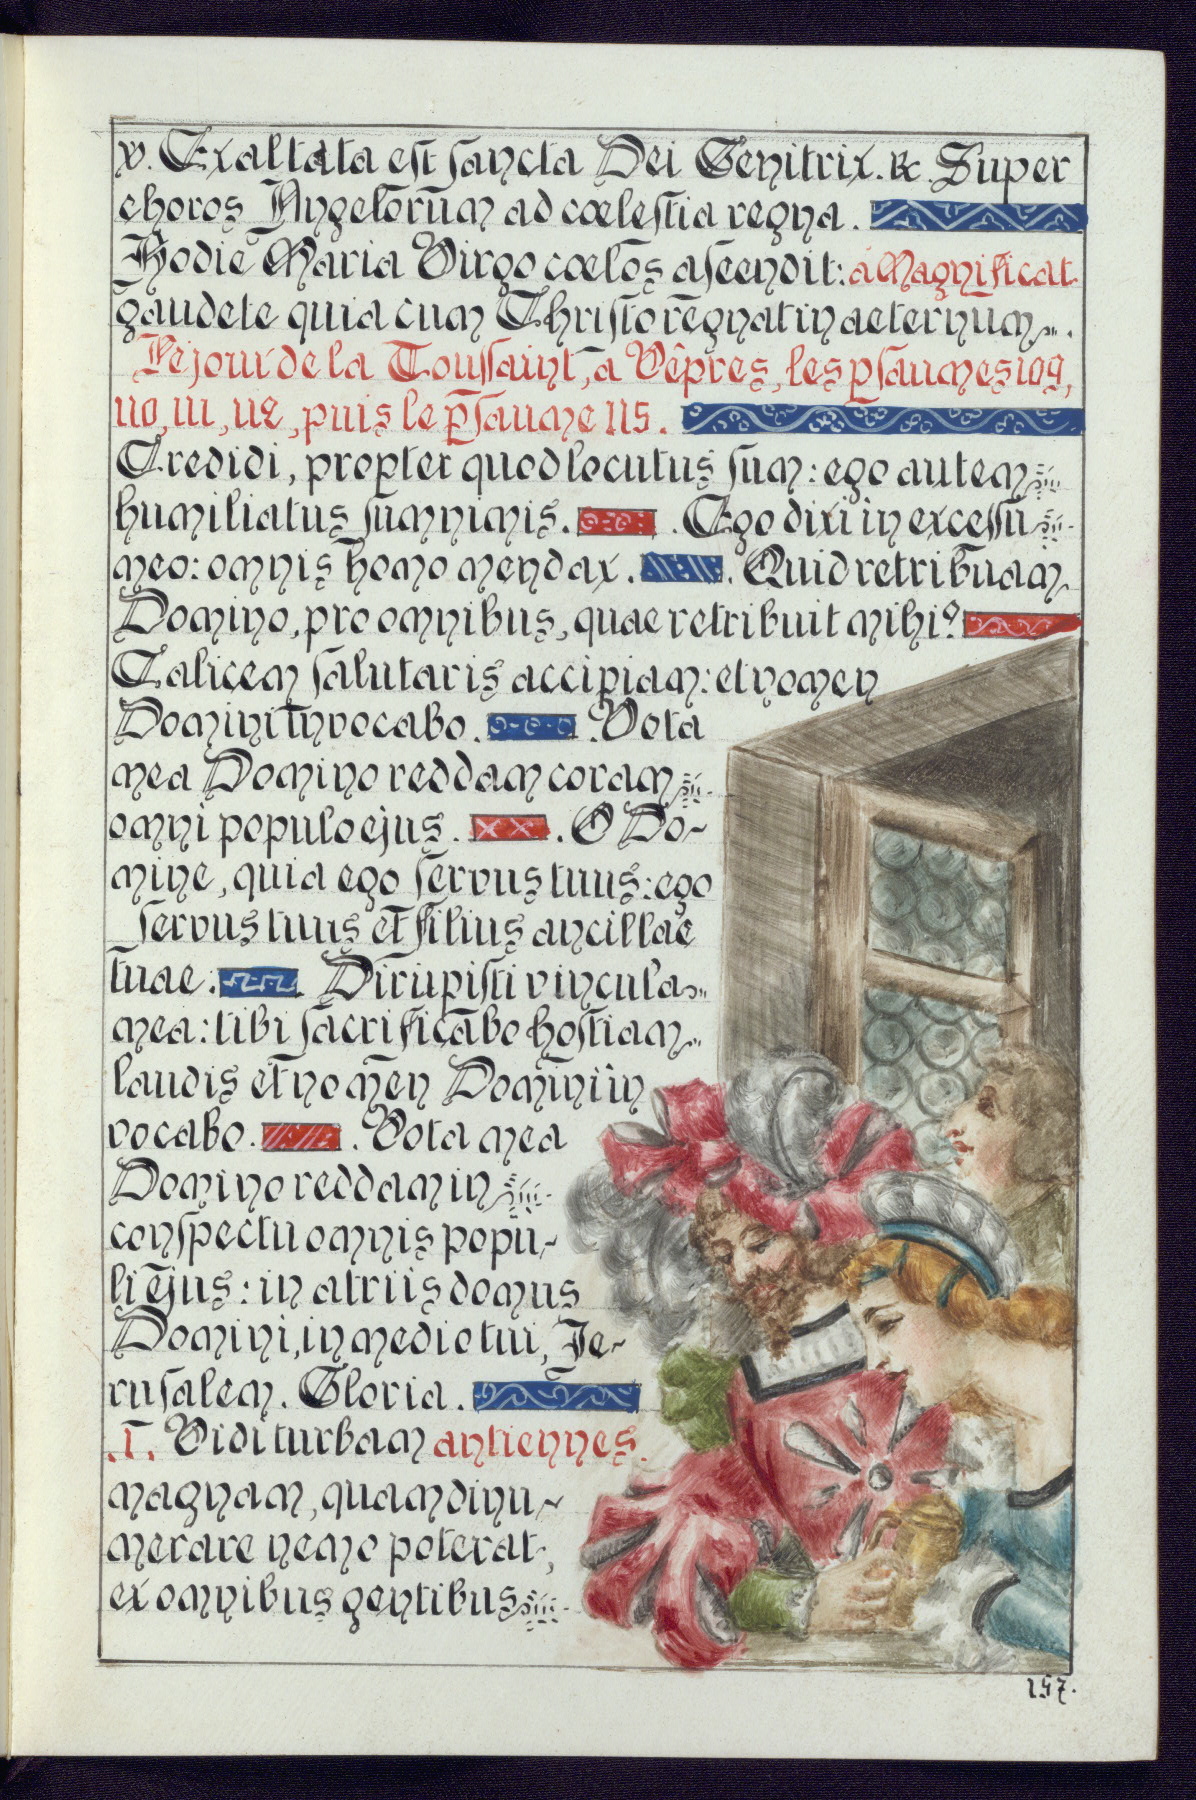 ℣. Exaltata est sancta Dei Genitrix. ℟. Super
choros Angelorum ad cœlestia regna.
Hodie Maria Virgo cœlos ascendit: a Magnificat
gaudete quia cum Christo regnat in aeternum.
Le jour de la Toussaint, a Vêpres, les psaumes 109,
110, 111, 112, puis le psaume 115.
Credidi, propter quod locutus sum: ego autem
humiliatus sum nimis. Ego dixi in excessu
meo: omnis homo mendax. Quid retribuam
Domino, pro omnibus, quae retribuit mihi?
Calicem salutaris accipiam: et nomen
Domini invocabo. Vota
mea Domino reddam coram
omni populo ejus. O Do-
mine, quia ego servus tuus: ego
servus tuus et filius ancillae
tuae. Dirupisti vincula
mea: tibi sacrificabo hostiam
laudis et nomen Domini in
vocabo. Vota mea
Domino reddam in
conspectu omnis popu-
li ejus: in atriis domus
Domini, in medio tui, Je-
rusalem. Gloria.
.I. Vidi turbam antiennes.
magnam, quam dinu-
merare nemo poterat,
ex omnibus gentibus
157.